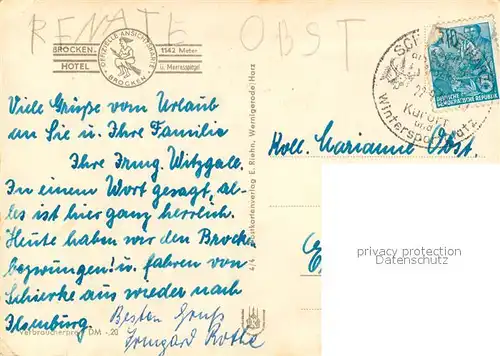 RENATE OBST
BROCKEN-
HOTEL
OFFIZIELLE ANSICHTSKARTE
BROCKEN
1142 Meter
ü. Meeresspiegel
DEUTSCHE
DEMOKRATISCHE REPUBLIK
Kurort
und
Wintersportplatz
Viele Grüße vom Urlaub
an Sie u. Ihre Familie
Ihre Irmg. Witzgall.
In einem Wort gesagt, al-
les ist hier ganz herrlich.
Heute haben wir den Brocken
bezwungen! u. fahren von
Schierke aus wieder nach
Ilsenburg.
Besten Gruß
Irmgard Rotte
Koll. Marianne Obst.
Postkartenverlag E. Riehn, Wernigerode/Harz
Verbraucherpreis DM -,20
privacy protection
Datenschutz